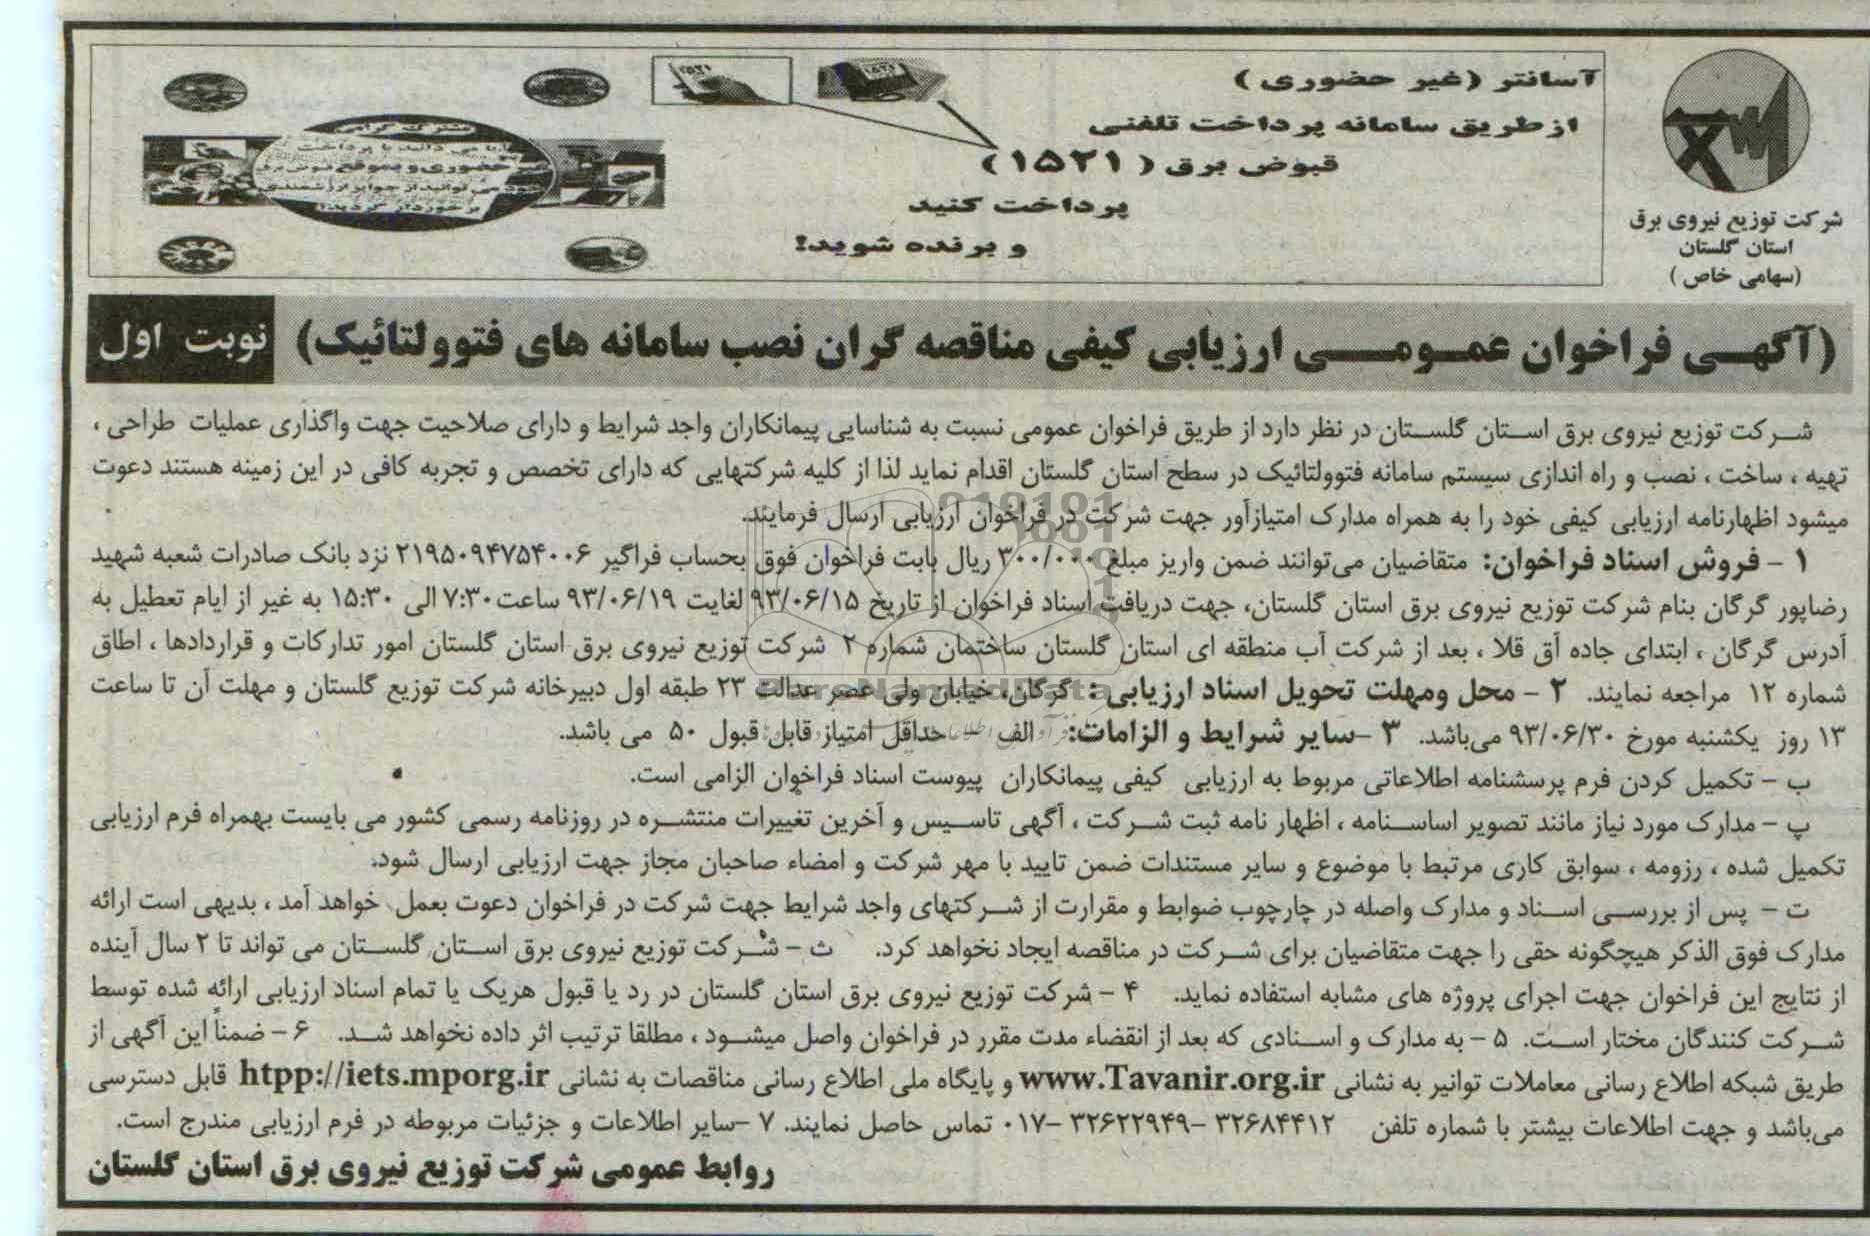 آسانتر (غیر حضوری)
از طریق سامانه پرداخت تلفنی
قبوض برق (۱۵۲۱)
پرداخت کنید
و برنده شوید!
۱۵۲۱
۱۵۲۱
مشترک گرامی
آیا می دانید با پرداخت
غیر حضوری و بموقع قبوض برق
خود می توانید از جوایز ارزشمندی
برخوردار گردید؟!
شرکت توزیع نیروی برق
استان گلستان
(سهامی خاص)
(آگهی فراخوان عمومی ارزیابی کیفی مناقصه گران نصب سامانه های فتوولتائیک) نوبت اول
شرکت توزیع نیروی برق استان گلستان در نظر دارد از طریق فراخوان عمومی نسبت به شناسایی پیمانکاران واجد شرایط و دارای صلاحیت جهت واگذاری عملیات طراحی ،
تهیه ، ساخت ، نصب و راه اندازی سیستم سامانه فتوولتائیک در سطح استان گلستان اقدام نماید لذا از کلیه شرکتهایی که دارای تخصص و تجربه کافی در این زمینه هستند دعوت
میشود اظهارنامه ارزیابی کیفی خود را به همراه مدارک امتیازآور جهت شرکت در فراخوان ارزیابی ارسال فرمایند.
۱ - فروش اسناد فراخوان: متقاضیان می‌توانند ضمن واریز مبلغ ۳۰۰/۰۰۰ ریال بابت فراخوان فوق بحساب فراگیر ۲۱۹۵۰۹۴۷۵۴۰۰۶ نزد بانک صادرات شعبه شهید
رضاپور گرگان بنام شرکت توزیع نیروی برق استان گلستان، جهت دریافت اسناد فراخوان از تاریخ ۹۳/۰۶/۱۵ لغایت ۹۳/۰۶/۱۹ ساعت ۷:۳۰ الی ۱۵:۳۰ به غیر از ایام تعطیل به
آدرس گرگان ، ابتدای جاده آق قلا ، بعد از شرکت آب منطقه ای استان گلستان ساختمان شماره ۲ شرکت توزیع نیروی برق استان گلستان امور تدارکات و قراردادها ، اطاق
شماره ۱۲ مراجعه نمایند. ۲ - محل ومهلت تحویل اسناد ارزیابی : گرگان، خیابان ولی عصر عدالت ۲۳ طبقه اول دبیرخانه شرکت توزیع گلستان و مهلت آن تا ساعت
۱۳ روز یکشنبه مورخ ۹۳/۰۶/۳۰ می‌باشد. ۳ -سایر شرایط و الزامات: الف - حداقل امتیاز قابل قبول ۵۰ می باشد.
ب - تکمیل کردن فرم پرسشنامه اطلاعاتی مربوط به ارزیابی کیفی پیمانکاران پیوست اسناد فراخوان الزامی است.
پ - مدارک مورد نیاز مانند تصویر اساسنامه ، اظهار نامه ثبت شرکت ، آگهی تاسیس و آخرین تغییرات منتشره در روزنامه رسمی کشور می بایست بهمراه فرم ارزیابی
تکمیل شده ، رزومه ، سوابق کاری مرتبط با موضوع و سایر مستندات ضمن تایید با مهر شرکت و امضاء صاحبان مجاز جهت ارزیابی ارسال شود.
ت - پس از بررسی اسناد و مدارک واصله در چارچوب ضوابط و مقرارت از شرکتهای واجد شرایط جهت شرکت در فراخوان دعوت بعمل خواهد آمد ، بدیهی است ارائه
مدارک فوق الذکر هیچگونه حقی را جهت متقاضیان برای شرکت در مناقصه ایجاد نخواهد کرد. ث - شرکت توزیع نیروی برق استان گلستان می تواند تا ۲ سال آینده
از نتایج این فراخوان جهت اجرای پروژه های مشابه استفاده نماید. ۴ - شرکت توزیع نیروی برق استان گلستان در رد یا قبول هریک یا تمام اسناد ارزیابی ارائه شده توسط
شرکت کنندگان مختار است. ۵ - به مدارک و اسنادی که بعد از انقضاء مدت مقرر در فراخوان واصل میشود ، مطلقا ترتیب اثر داده نخواهد شد. ۶ - ضمناً این آگهی از
طریق شبکه اطلاع رسانی معاملات توانیر به نشانی www.Tavanir.org.ir و پایگاه ملی اطلاع رسانی مناقصات به نشانی htpp://iets.mporg.ir قابل دسترسی
می‌باشد و جهت اطلاعات بیشتر با شماره تلفن ۳۲۶۸۴۴۱۲ -۳۲۶۲۲۹۴۹ -۰۱۷ تماس حاصل نمایند. ۷ -سایر اطلاعات و جزئیات مربوطه در فرم ارزیابی مندرج است.
روابط عمومی شرکت توزیع نیروی برق استان گلستان
ParsNamadData